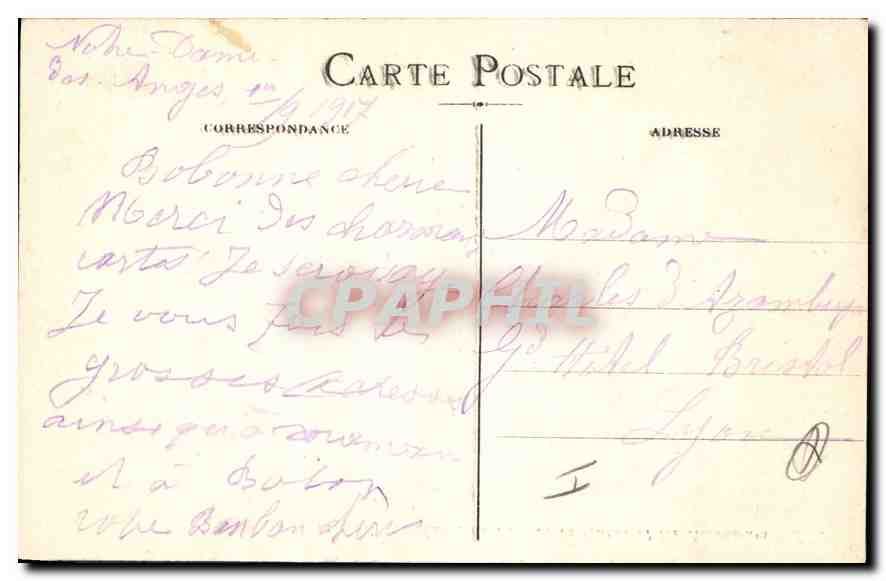 Notre-Dame
des Anges, 1er/9 1917
CARTE POSTALE
CORRESPONDANCE
ADRESSE
Bobonne chérie
Merci des charmans
cartes Je
Je vous fais de
grosses caresses
ainsi qu'à
et à Bobon
votre Bonbon chéri
Madame
Charles d'Arambuja
Gd Hôtel Bristol
Lyon
I
CPAPHIL